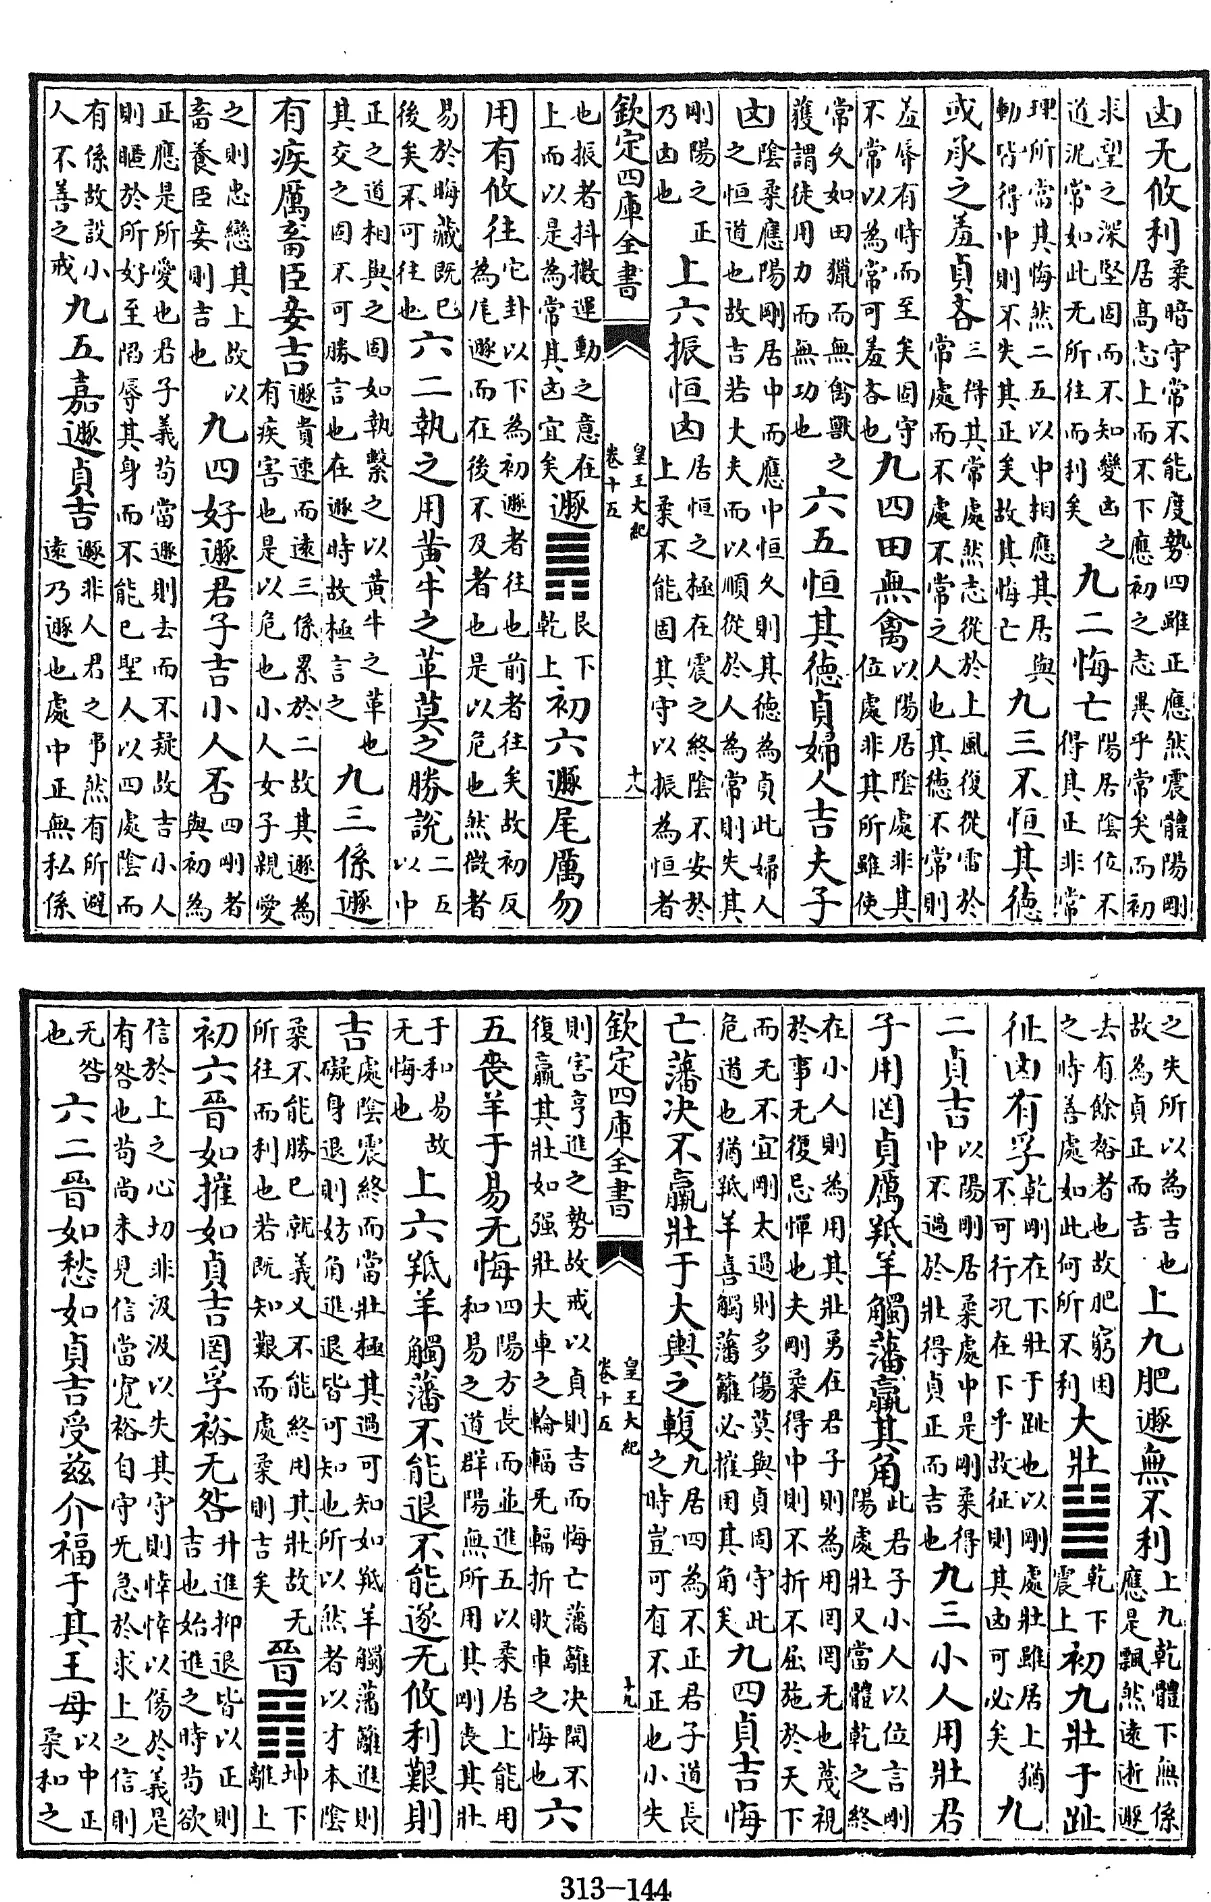 凶无攸利柔暗守常不能度勢四雖正應然震體陽剛居高志上而不下應初之志異乎常矣而初
求望之深堅固而不知變凶之道況常如此无所往而利矣九二悔亡陽居陰位不得其正非常
理所當其悔然二五以中相應其居與動皆得中則不失其正矣故其悔亡九三不恒其德
或承之羞貞吝三得其常處然志從於上風復從雷於常處而不處不常之人也其德不常則
羞辱有時而至矣固守不常以為常可羞吝也九四田無禽以陽居陰處非其位處非其所雖使
常久如田獵而無禽獸之獲謂徒用力而無功也六五恒其德貞婦人吉夫子
凶陰柔應陽剛居中而應中恒久則其德為貞此婦人之恒道也故吉若大夫而以順從於人為常則失其
剛陽之正乃凶也上六振恒凶居恒之極在震之終陰不安於上柔不能固其守以振為恒者
欽定四庫全書 皇王大紀 卷十五 十八
也振者抖擻運動之意在上而以是為常其凶宜矣遯䷠艮下乾上初六遯尾厲勿
用有攸往它卦以下為初遯者往也前者往矣故初反為尾遯而在後不及者也是以危也然微者
易於晦藏既已後矣不可往也六二執之用黃牛之革莫之勝說二五以中
正之道相與之固如執繫之以黃牛之革也其交之固不可勝言也在遯時故極言之九三係遯
有疾厲畜臣妾吉遯貴速而遠三係累於二故其遯為有疾害也是以危也小人女子親愛
之則忠戀其上故以畜養臣妾則吉也九四好遯君子吉小人否四剛者與初為
正應是所愛也君子義苟當遯則去而不疑故吉小人則暱於所好至陷辱其身而不能已聖人以四處陰而
有係故設小人不善之戒九五嘉遯貞吉遯非人君之事然有所避遠乃遯也處中正無私係
之失所以為吉也故為貞正而吉上九肥遯無不利上九乾體下無係應是飄然遠逝遯
去有餘裕者也故肥窮困之時善處如此何所不利大壯䷡乾下震上初九壯于趾
征凶有孚乾剛在下壯于趾也以剛處壯雖居上猶不可行況在下乎故征則其凶可必矣九
二貞吉以陽剛居柔處中是剛柔得中不過於壯得貞正而吉也九三小人用壯君
子用罔貞厲羝羊觸藩羸其角此君子小人以位言剛陽處壯又當體乾之終
在小人則為用其壯勇在君子則為用罔罔无也蔑視於事无復忌憚也夫剛柔得中則不折不屈施於天下
而无不宜剛太過則多傷莫與貞固守此危道也猶羝羊喜觸藩籬必摧困其角矣九四貞吉悔
亡藩決不羸壯于大輿之輹九居四為不正君子道長之時豈可有不正也小失
欽定四庫全書 皇王大紀 卷十五 十九
則害亨進之勢故戒以貞則吉而悔亡藩籬決開不復羸其壯如强壯大車之輪輻旡輻折敗車之悔也六
五喪羊于易无悔四陽方長而並進五以柔居上能用和易之道群陽無所用其剛喪其壯
于和易故无悔也上六羝羊觸藩不能退不能遂无攸利艱則
吉處陰震終而當壯極其過可知如羝羊觸藩籬進則礙身退則妨角進退皆可知也所以然者以才本陰
柔不能勝已就義又不能終用其壯故无所往而利也若既知艱而處柔則吉矣晉䷢坤下離上
初六晉如摧如貞吉罔孚裕无咎升進抑退皆以正則吉也始進之時茍欲
信於上之心切非汲汲以失其守則悻悻以傷於義是有咎也苟尚未見信當寬裕自守旡急於求上之信則
无咎也六二晉如愁如貞吉受茲介福于其王母以中正柔和之
313-144